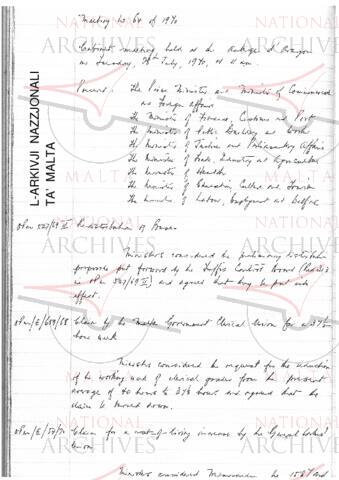 Meeting No 64 of 1970
Cabinet meeting held at the Auberge d'Aragon
on Tuesday, July, 1970, at 11 a.m.
Present: The Prime Minister and Minister of Commonwealth
and Foreign Affairs
The Minister of Finance, Customs and Port
The Minister of Public Building and Works
The Minister of Justice and Parliamentary Affairs
The Minister of Trade, Industry and Agriculture
The Minister of Health
The Minister of Education, Culture and Tourism
The Minister of Labour, Employment and Welfare
OPM 527/69 II of Buses
Ministers considered the preliminary
proposals put forward by the Traffic Control Board
in OPM 527/69 II and agreed that they be put into
effect.
OPM/E/659/68 Claim by the Malta Government Clerical Union for a 37½
hour week
Ministers considered the request for the reduction
of the working week of clerical grades from the present
average of 40 hours to 37½ hours and agreed that the
claim be turned down.
OPM/E/50/70 Claim for a cost-of-living increase by the General Workers'
Union
Ministers considered Memorandum No 1587 and
L-ARKIVJI NAZZJONALI
TA' MALTA
NATIONAL
ARCHIVES
MALTA